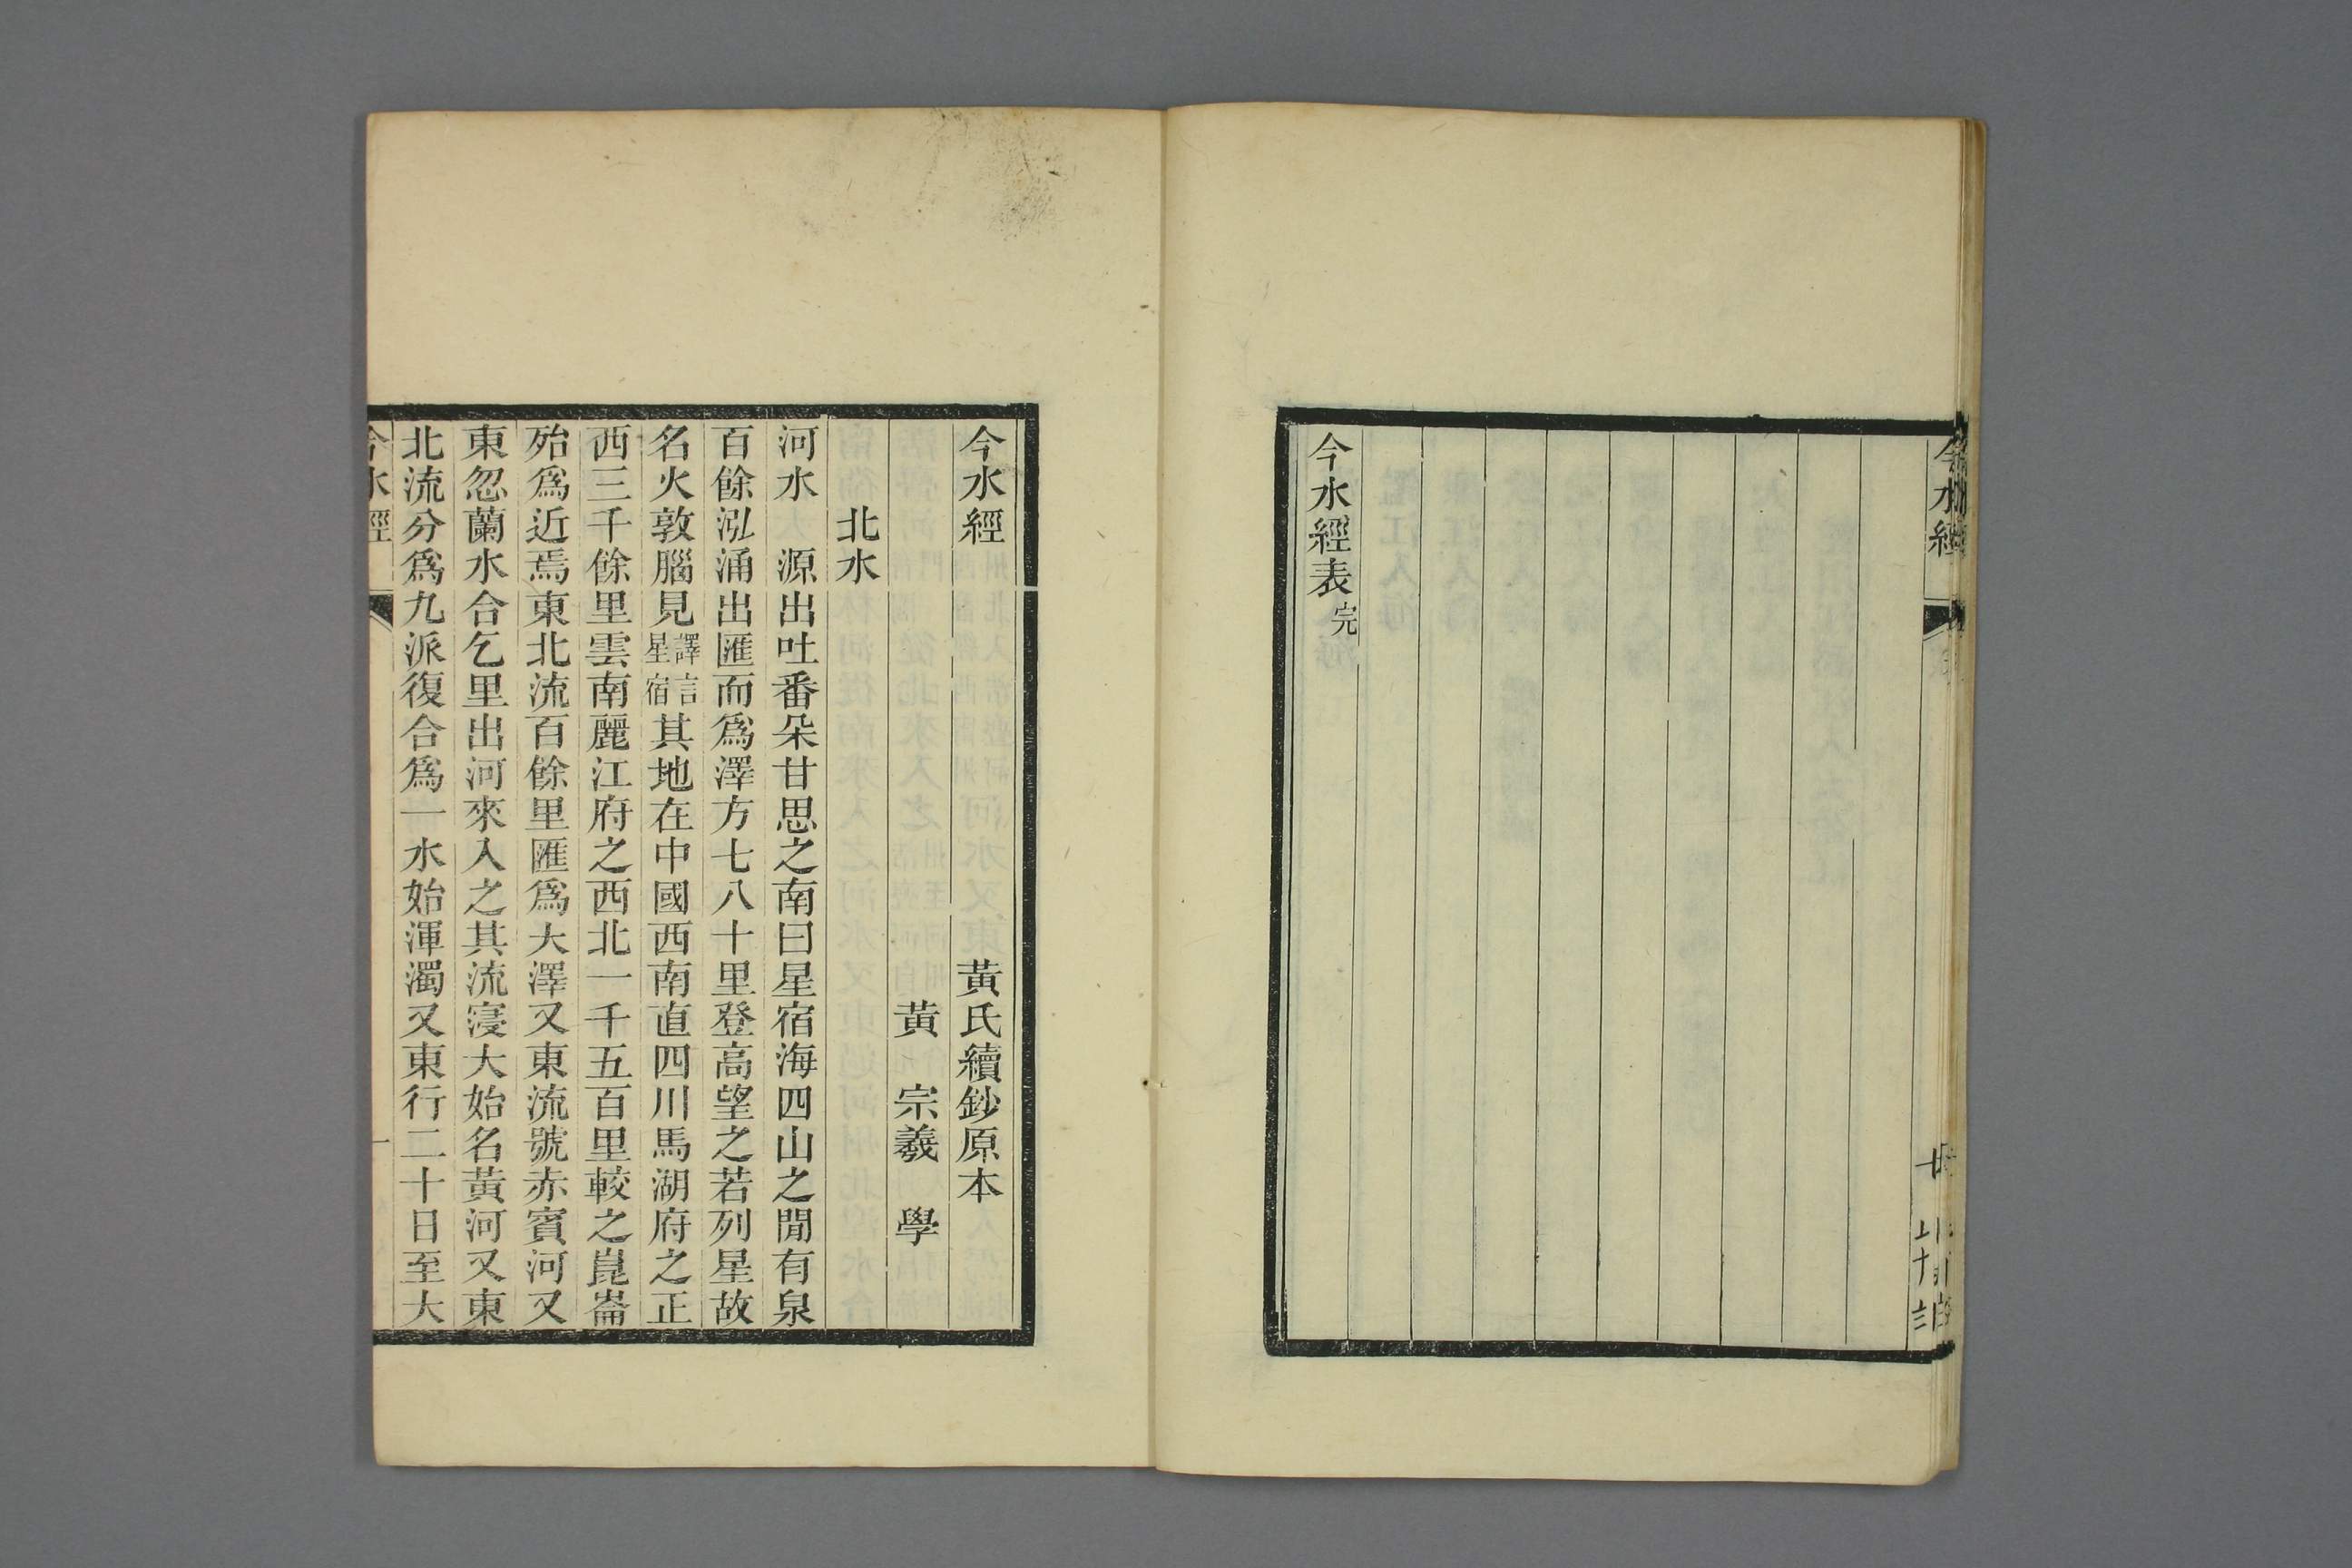 今水經
今水經表完
今水經 黃氏續鈔原本
黃 宗羲 學
北水
河水 源出吐番朵甘思之南曰星宿海四山之閒有泉
百餘泓涌出匯而爲澤方七八十里登高望之若列星故
名火敦腦見譯言星宿其地在中國西南直四川馬湖府之正
西三千餘里雲南麗江府之西北一千五百里較之崑崙
殆爲近焉東北流百餘里匯爲大澤又東流號赤賓河又
東忽蘭水合乞里出河來入之其流寖大始名黃河又東
北流分爲九派復合爲一水始渾濁又東行二十日至大
今水經 一